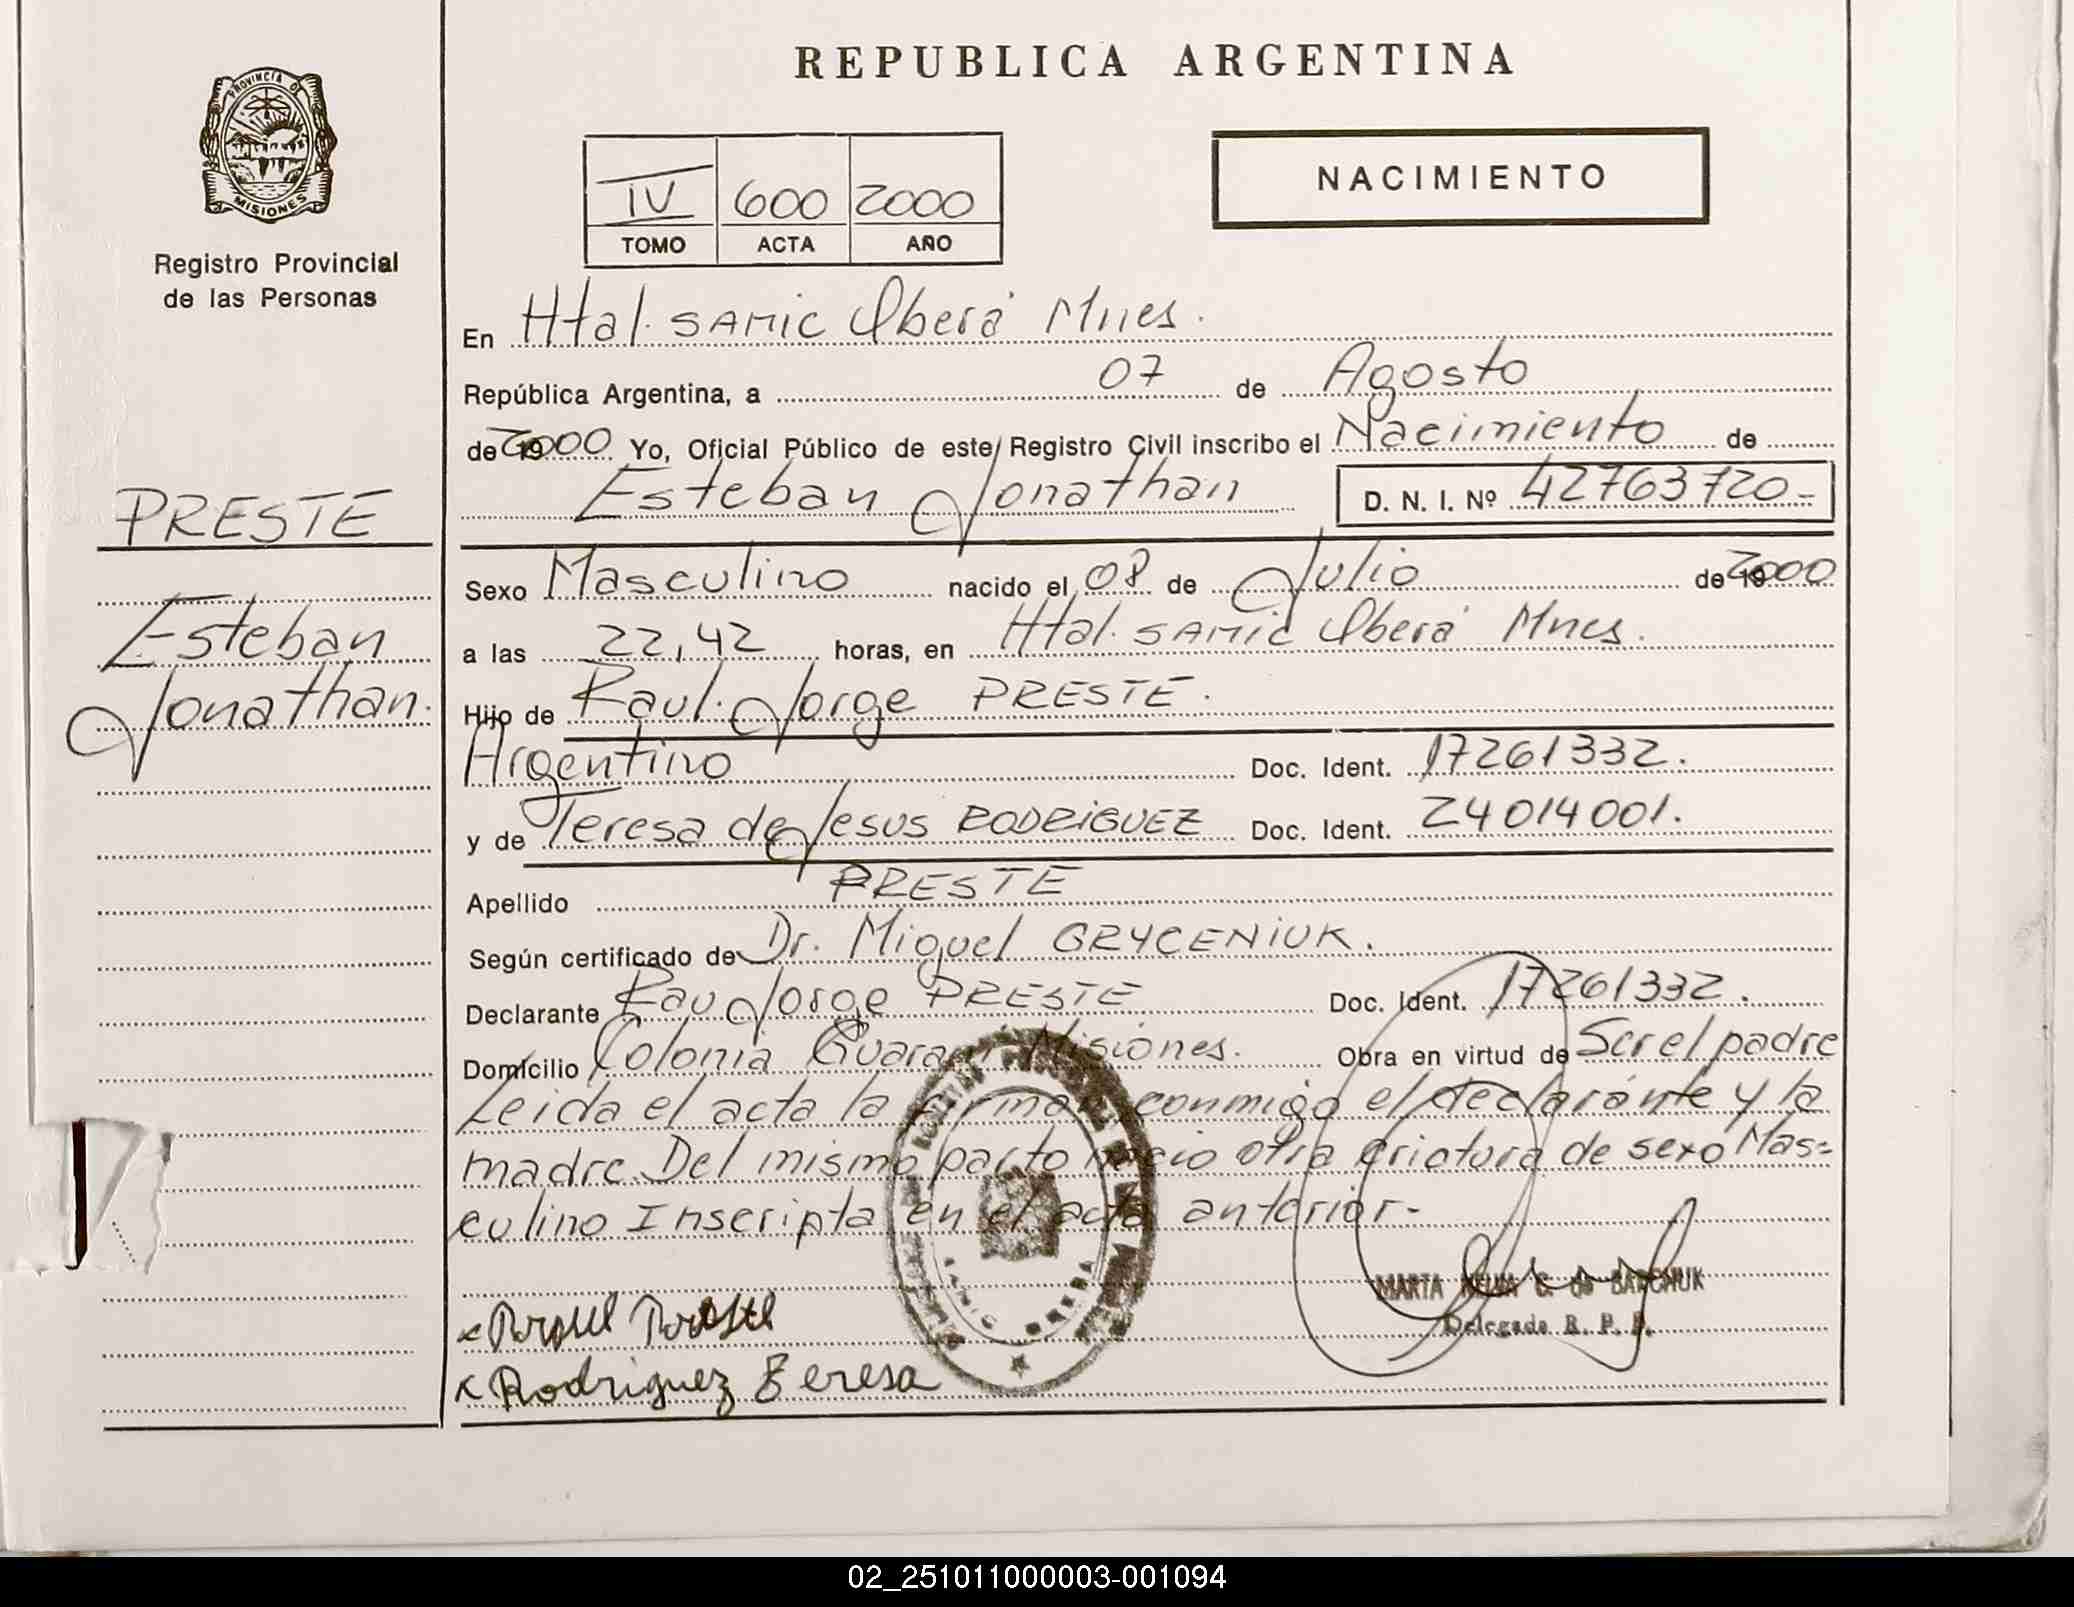 REPUBLICA ARGENTINA
PROVINCIA DE MISIONES
Registro Provincial
de las Personas
IV 600 2000
TOMO ACTA AÑO
NACIMIENTO
En Htal. SAMIC Oberá Mnes.
República Argentina, a 07 de Agosto
de 2000 Yo, Oficial Público de este Registro Civil inscribo el Nacimiento de
Esteban Jonathan D. N. I. Nº 42763720-
PRESTE
Esteban
Jonathan.
Sexo Masculino nacido el 08 de Julio de 2000
a las 22,42 horas, en Htal. SAMIC Oberá Mnes.
Hijo de Raul Jorge PRESTE.
Argentino Doc. Ident. 17261332.
y de Teresa de Jesus RODRIGUEZ Doc. Ident. 24014001.
Apellido PRESTE
Según certificado de Dr. Miguel GRYCENIUK.
Declarante Raul Jorge PRESTE Doc. Ident. 17261332.
Domicilio Colonia Guarani Misiones. Obra en virtud de Ser el padre
Leida el acta la firman conmigo el declarante y la
madre. Del mismo parto nacio otra criatura de sexo Mas=
culino Inscripta en el acta anterior-
SAMIC OBERA
MARTA C. de
Delegada R. P. P.
x Preste
x Rodriguez Teresa
02_251011000003-001094